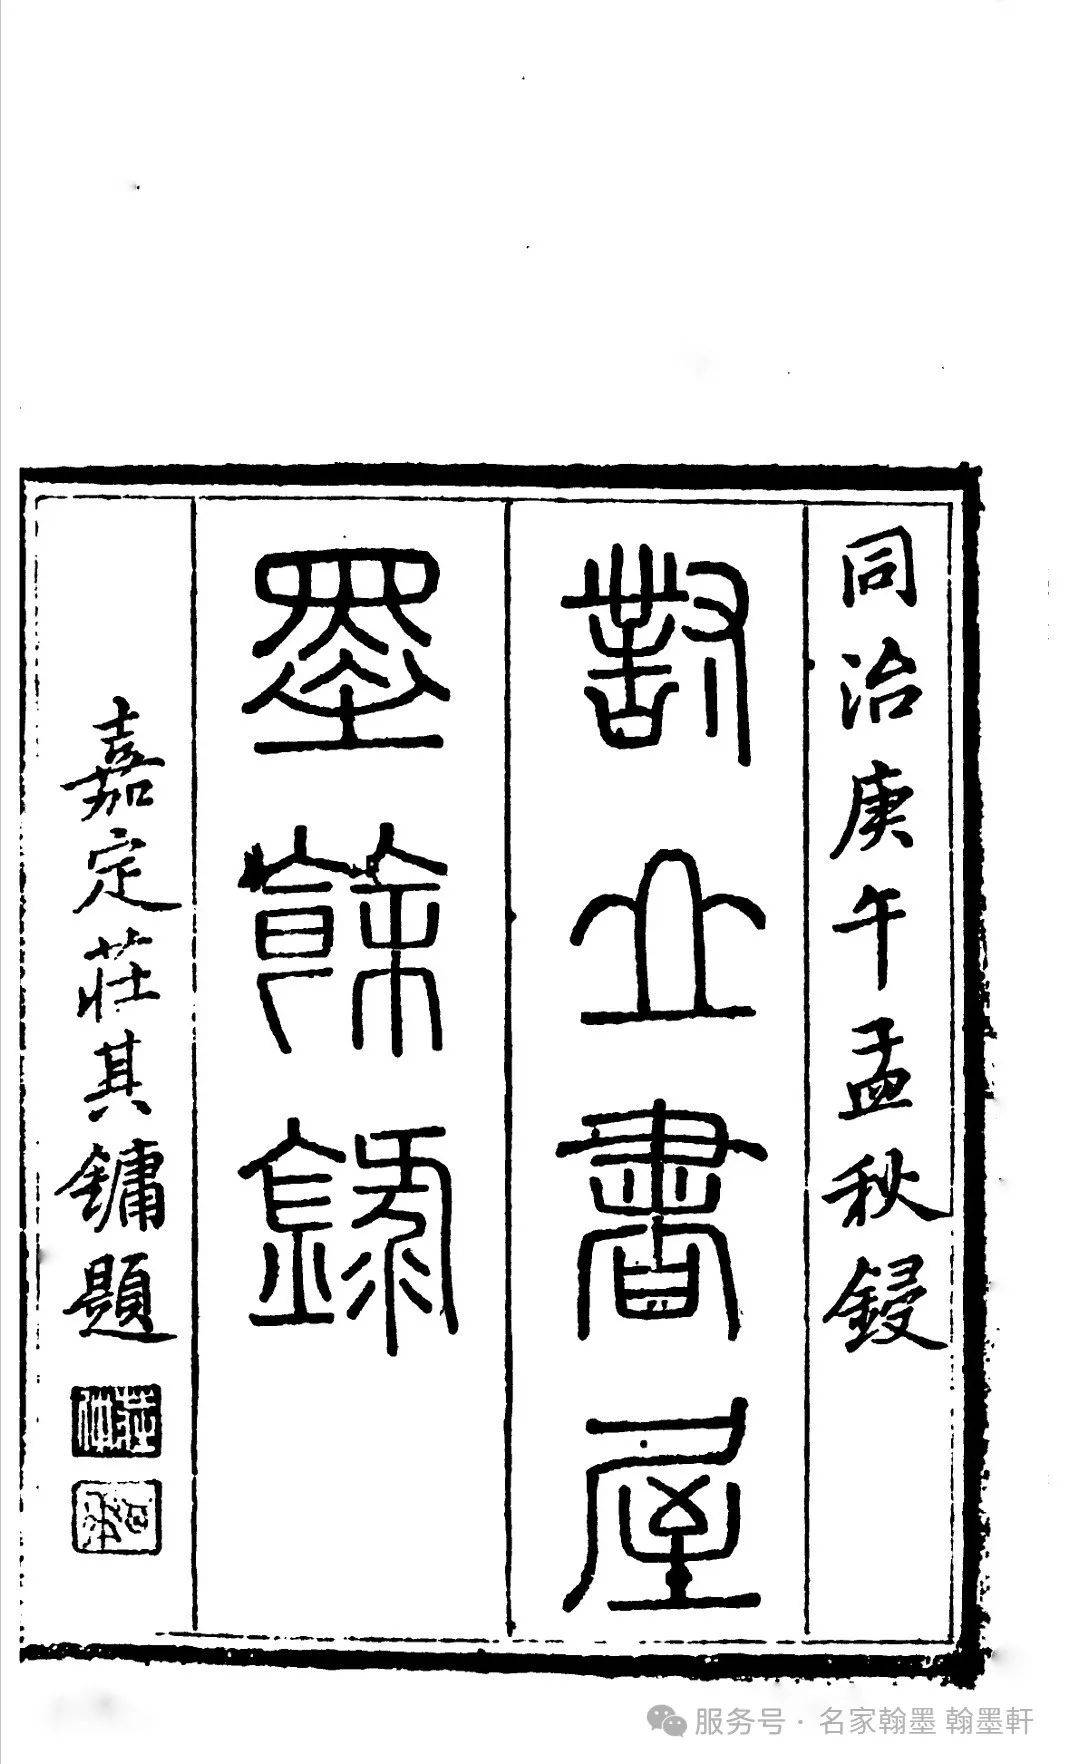 同治庚午孟秋鋟
對山書屋
墨餘錄
嘉定莊其鏞題
服务号 · 名家翰墨 翰墨軒